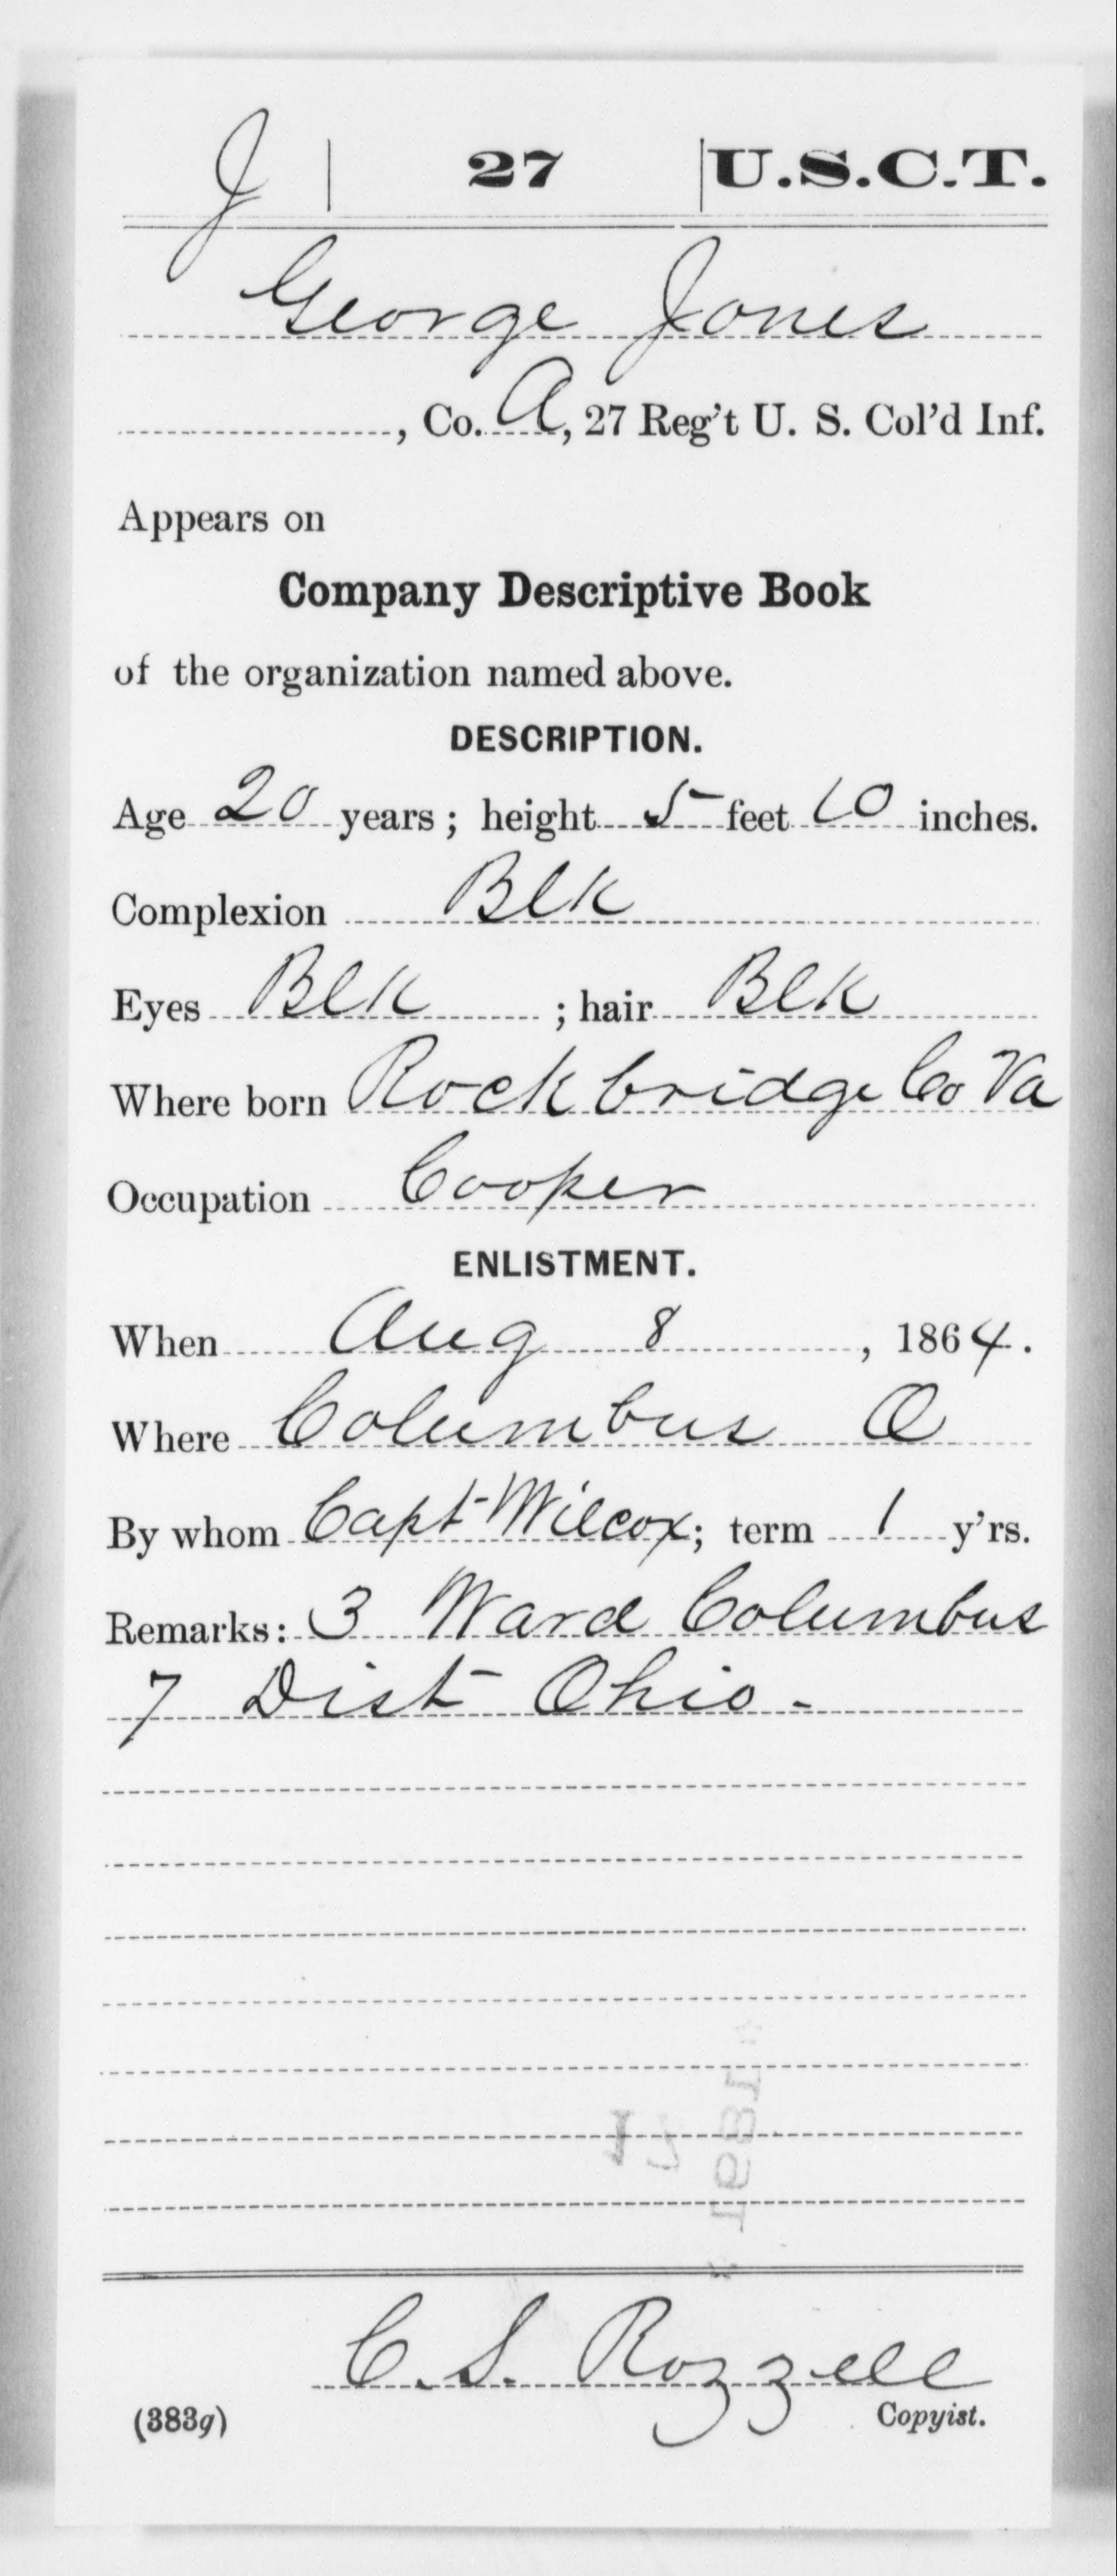 J | 27 | U.S.C.T.
George Jones
, Co. A, 27 Reg't U. S. Col'd Inf.
Appears on
Company Descriptive Book
of the organization named above.
DESCRIPTION.
Age 20 years; height 5 feet 10 inches.
Complexion Blk
Eyes Blk ; hair Blk
Where born Rockbridge Co Va
Occupation Cooper
ENLISTMENT.
When Aug 8, 1864.
Where Columbus O
By whom Capt Wilcox; term 1 y'rs.
Remarks: 3 Ward Columbus
7 Dist Ohio -
C. S. Rozzell
(383g) Copyist.